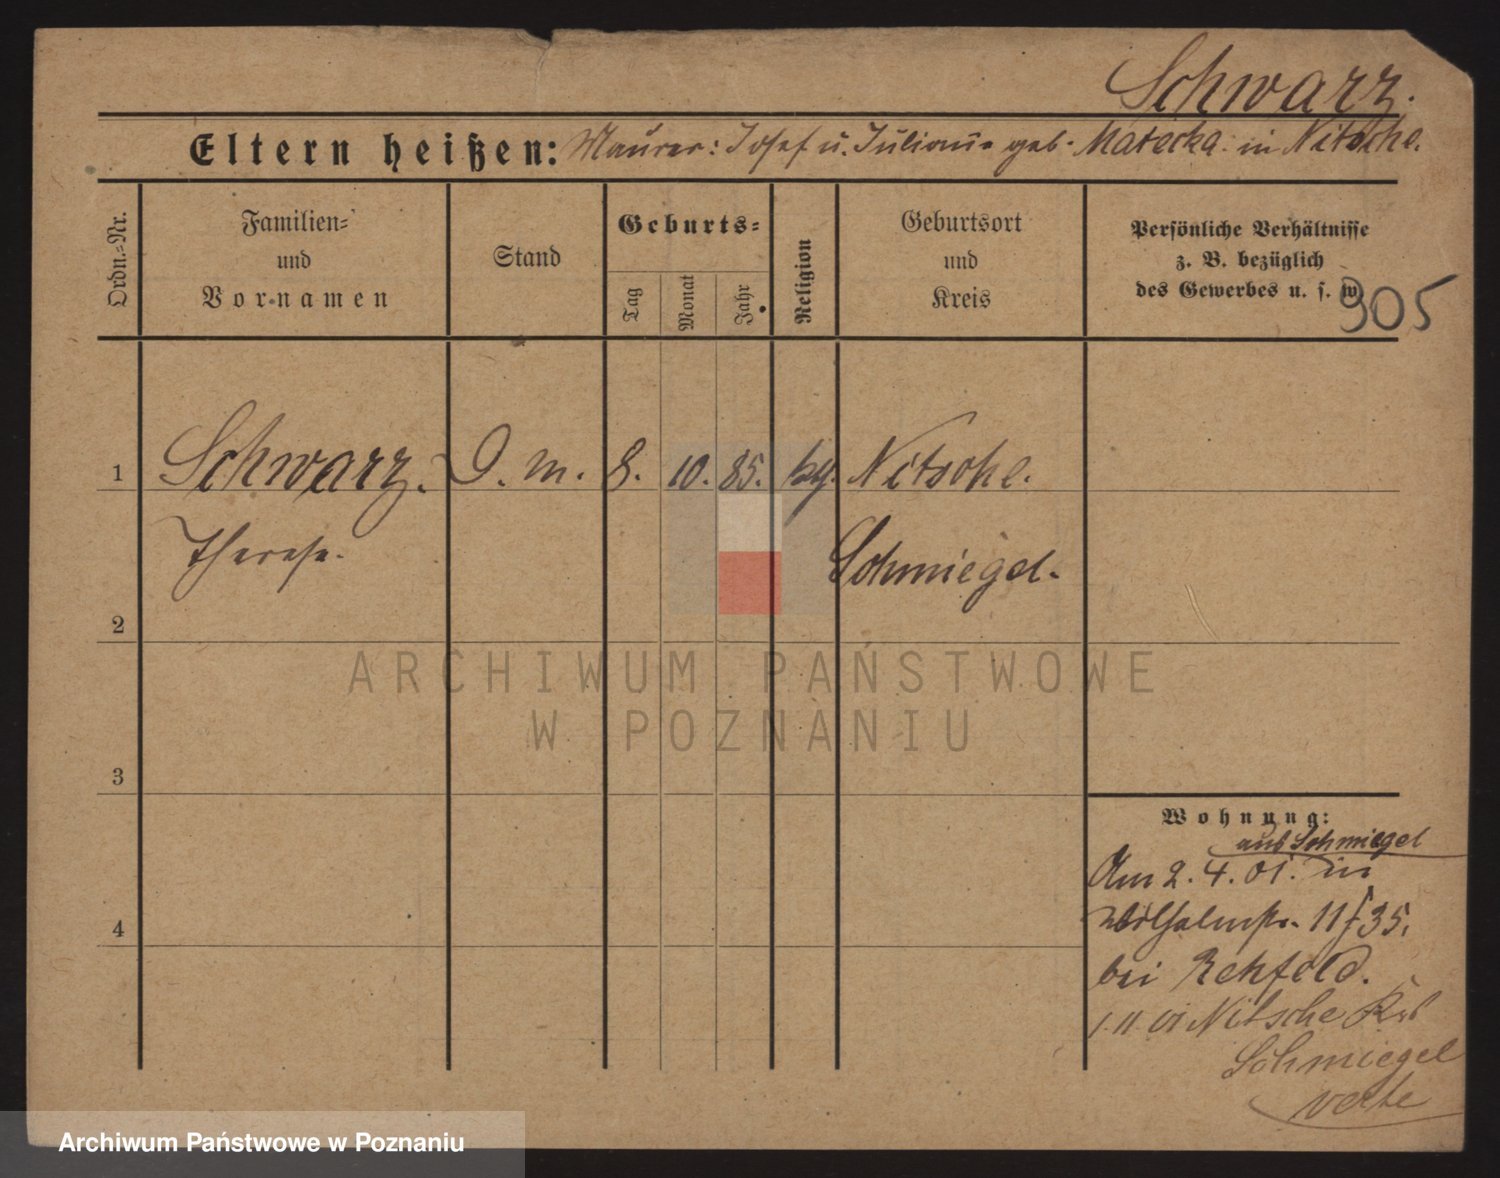 Schwarz.
Eltern heißen: Maurer: Josef u. Juliane geb. Matecka in Nitsche.
Ordn.=Nr.
Familien=
und
Vornamen
Stand
Geburts=
Tag
Monat
Jahr
Religion
Geburtsort
und
Kreis
Persönliche Verhältnisse
z. B. bezüglich
des Gewerbes u. s. w.
905
1 Schwarz. D. m. 8. 10. 85. Nitsche.
Therese. Schmiegel.
2
ARCHIWUM PAŃSTWOWE
W POZNANIU
3
Wohnung:
aus Schmiegel
Am 2. 4. 01. in
Wilhelmstr. 11 f 35.
bei Rehfeld.
1. 11. 01 Nitsche
Schmiegel
verte
4
Archiwum Państwowe w Poznaniu